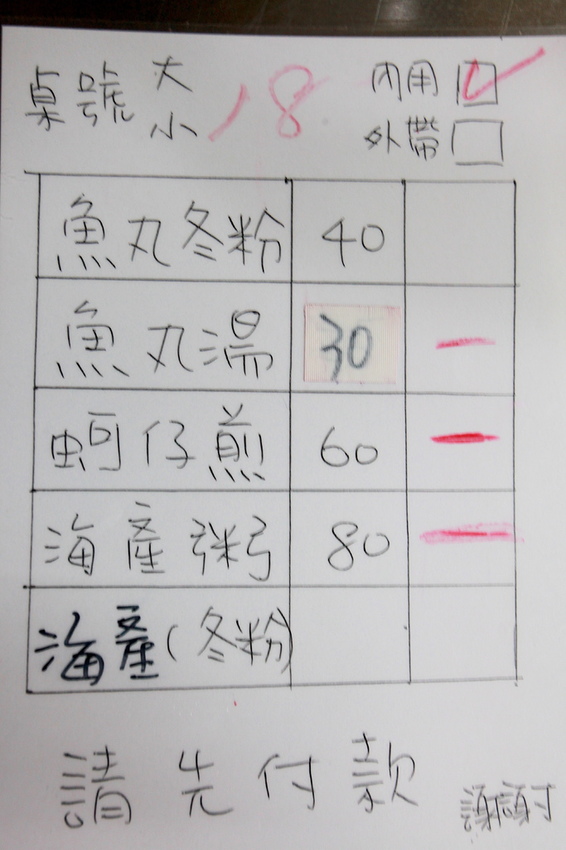 桌號 大 小 18 內用
外帶
魚丸冬粉 40
魚丸湯 30 一
蚵仔煎 60 一
海產粥 80 一
海產(冬粉)
請先付款 謝謝